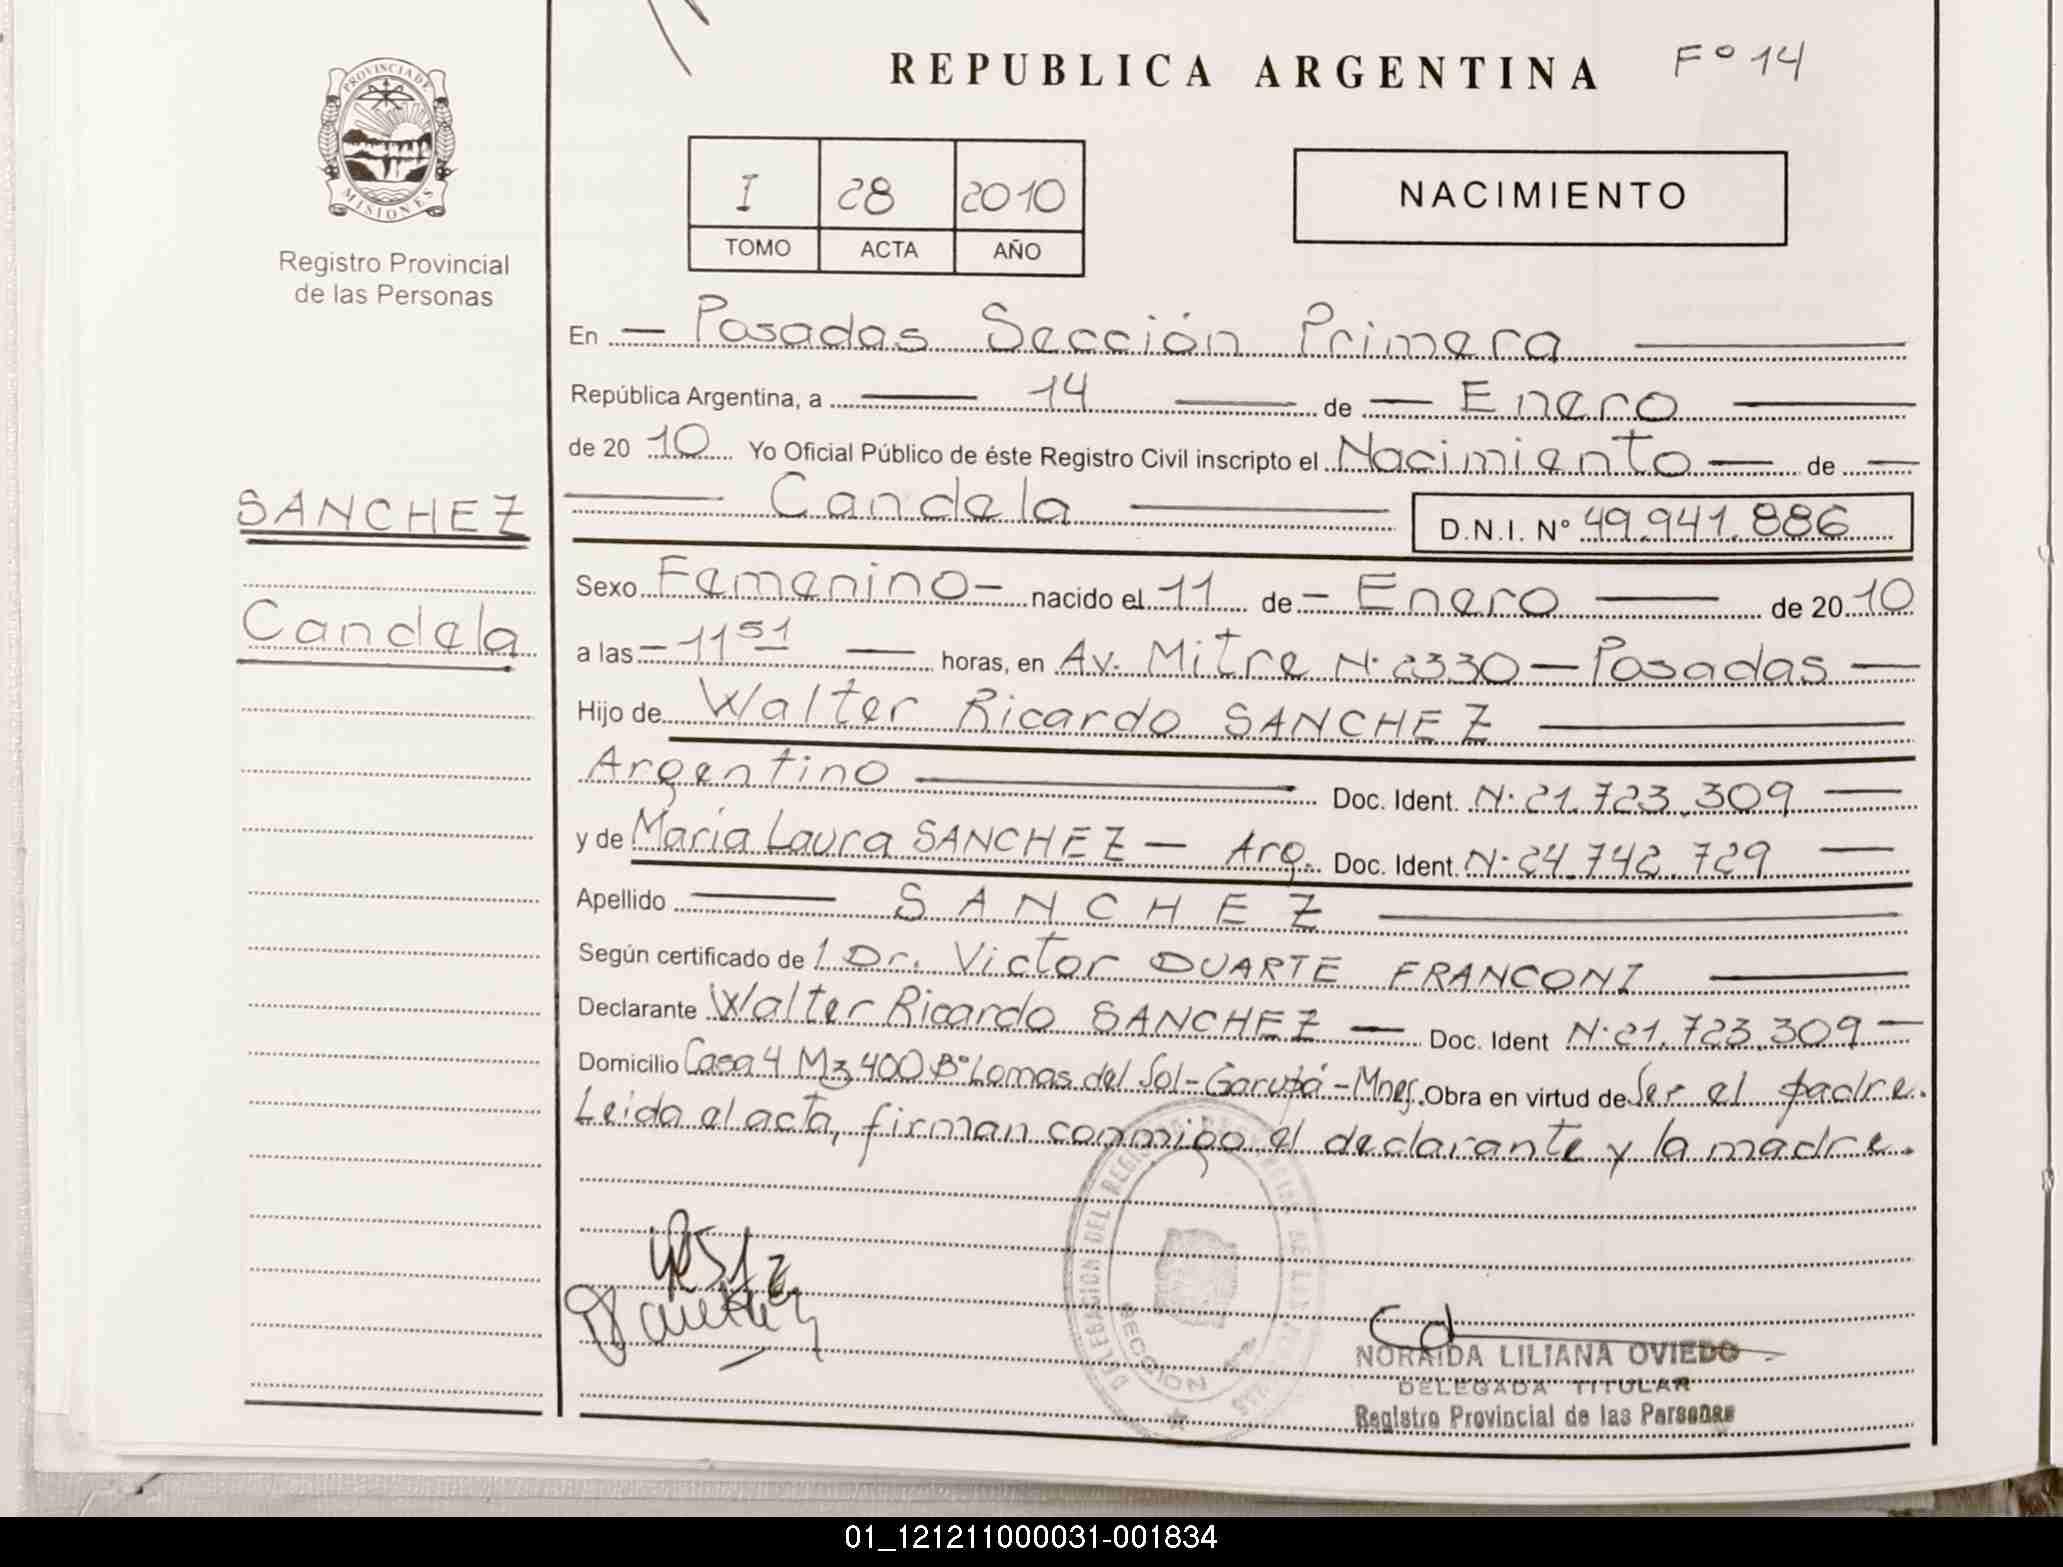 REPUBLICA ARGENTINA Fº 14
PROVINCIA DE
MISIONES
Registro Provincial
de las Personas
I 28 2010
TOMO ACTA AÑO
NACIMIENTO
En — Posadas Sección Primera —
República Argentina, a — 14 — de — Enero —
de 20 10 Yo Oficial Público de éste Registro Civil inscripto el Nacimiento — de —
SANCHEZ
Candela
— Candela — D.N.I. Nº 49.941.886
Sexo Femenino — nacido el 11 de — Enero — de 20 10
a las — 11 51 — horas, en Av. Mitre N· 2330 — Posadas —
Hijo de Walter Ricardo SANCHEZ —
Argentino — Doc. Ident. N· 21.723.309 —
y de María Laura SANCHEZ — Arg. Doc. Ident. N· 24.742.729 —
Apellido — SANCHEZ —
Según certificado de l Dr. Victor DUARTE FRANCONI —
Declarante Walter Ricardo SANCHEZ — Doc. Ident N· 21.723.309 —
Domicilio Casa 4 Mz 400 Bº Lomas del Sol - Garupá - Mnes. Obra en virtud de Ser el padre.
Leida el acta, firman conmigo el declarante y la madre.
DELEGACION DEL REGISTRO PROVINCIAL DE LAS PERSONAS
SECCION
NORAIDA LILIANA OVIEDO
DELEGADA TITULAR
Registro Provincial de las Personas
01_121211000031-001834